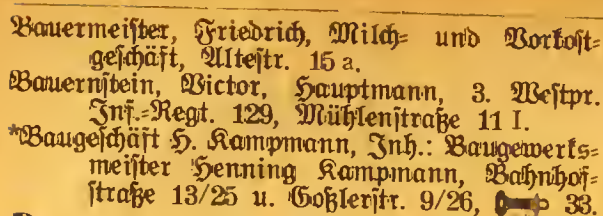 Bauermeister, Friedrich, Milch- und Vorkost-
geschäft, Altestr. 15 a.
Bauernstein, Victor, Hauptmann, 3. Westpr.
Inf.-Regt. 129, Mühlenstraße 11 I.
*Baugeschäft H. Kampmann, Inh.: Baugewerks-
meister Henning Kampmann, Bahnhof-
straße 13/25 u. Goßlerstr. 9/26, 33.